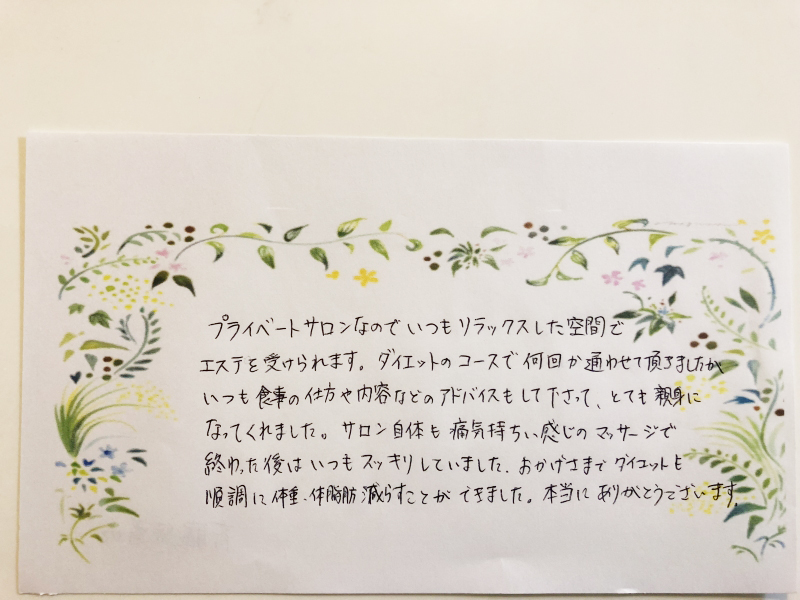 プライベートサロンなのでいつもリラックスした空間で
エステを受けられます。ダイエットのコースで何回か通わせて頂きましたが
いつも食事の仕方や内容などのアドバイスもして下さって、とても親身に
なってくれました。サロン自体も痛気持ちいい感じのマッサージで
終わった後はいつもスッキリしていました。おかげさまでダイエットも
順調に体重・体脂肪減らすことができました。本当にありがとうございます。